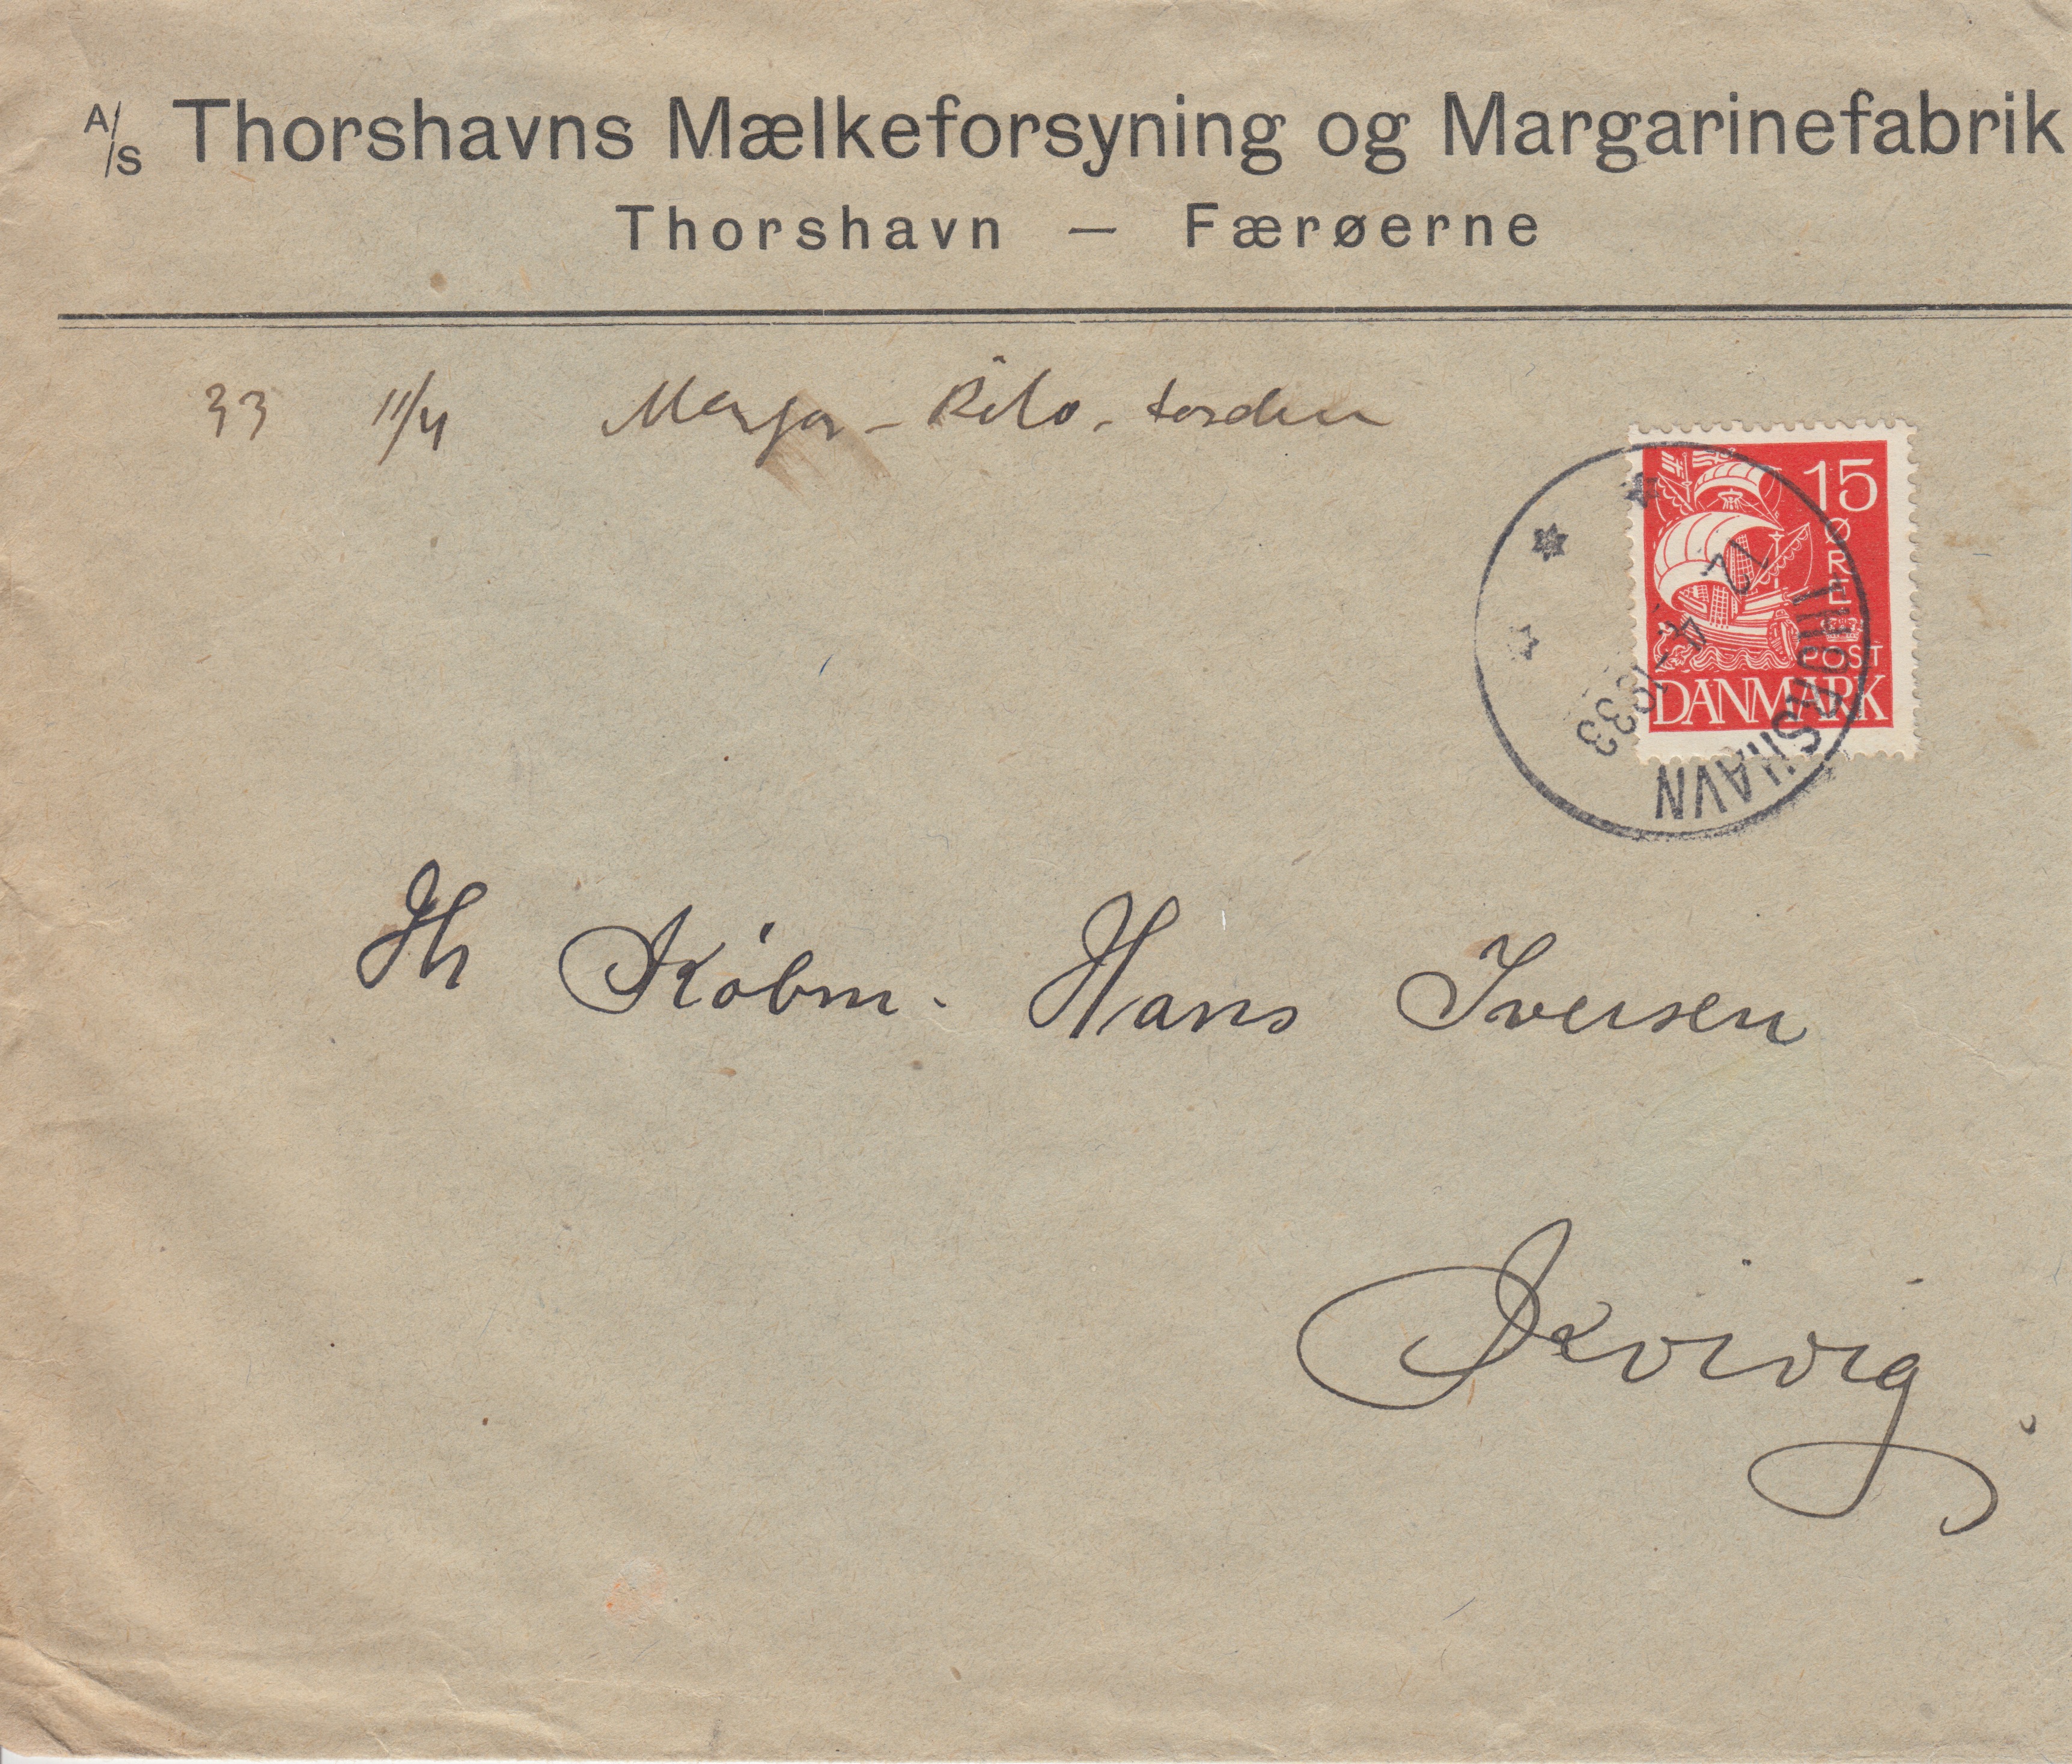 A/S Thorshavns Mælkeforsyning og Margarinefabrik
Thorshavn — Færøerne
33 11/4
15
ØRE
POST
DANMARK
THORSHAVN
12 4-1933
Hr Købm. Hans Iversen
Kvivig